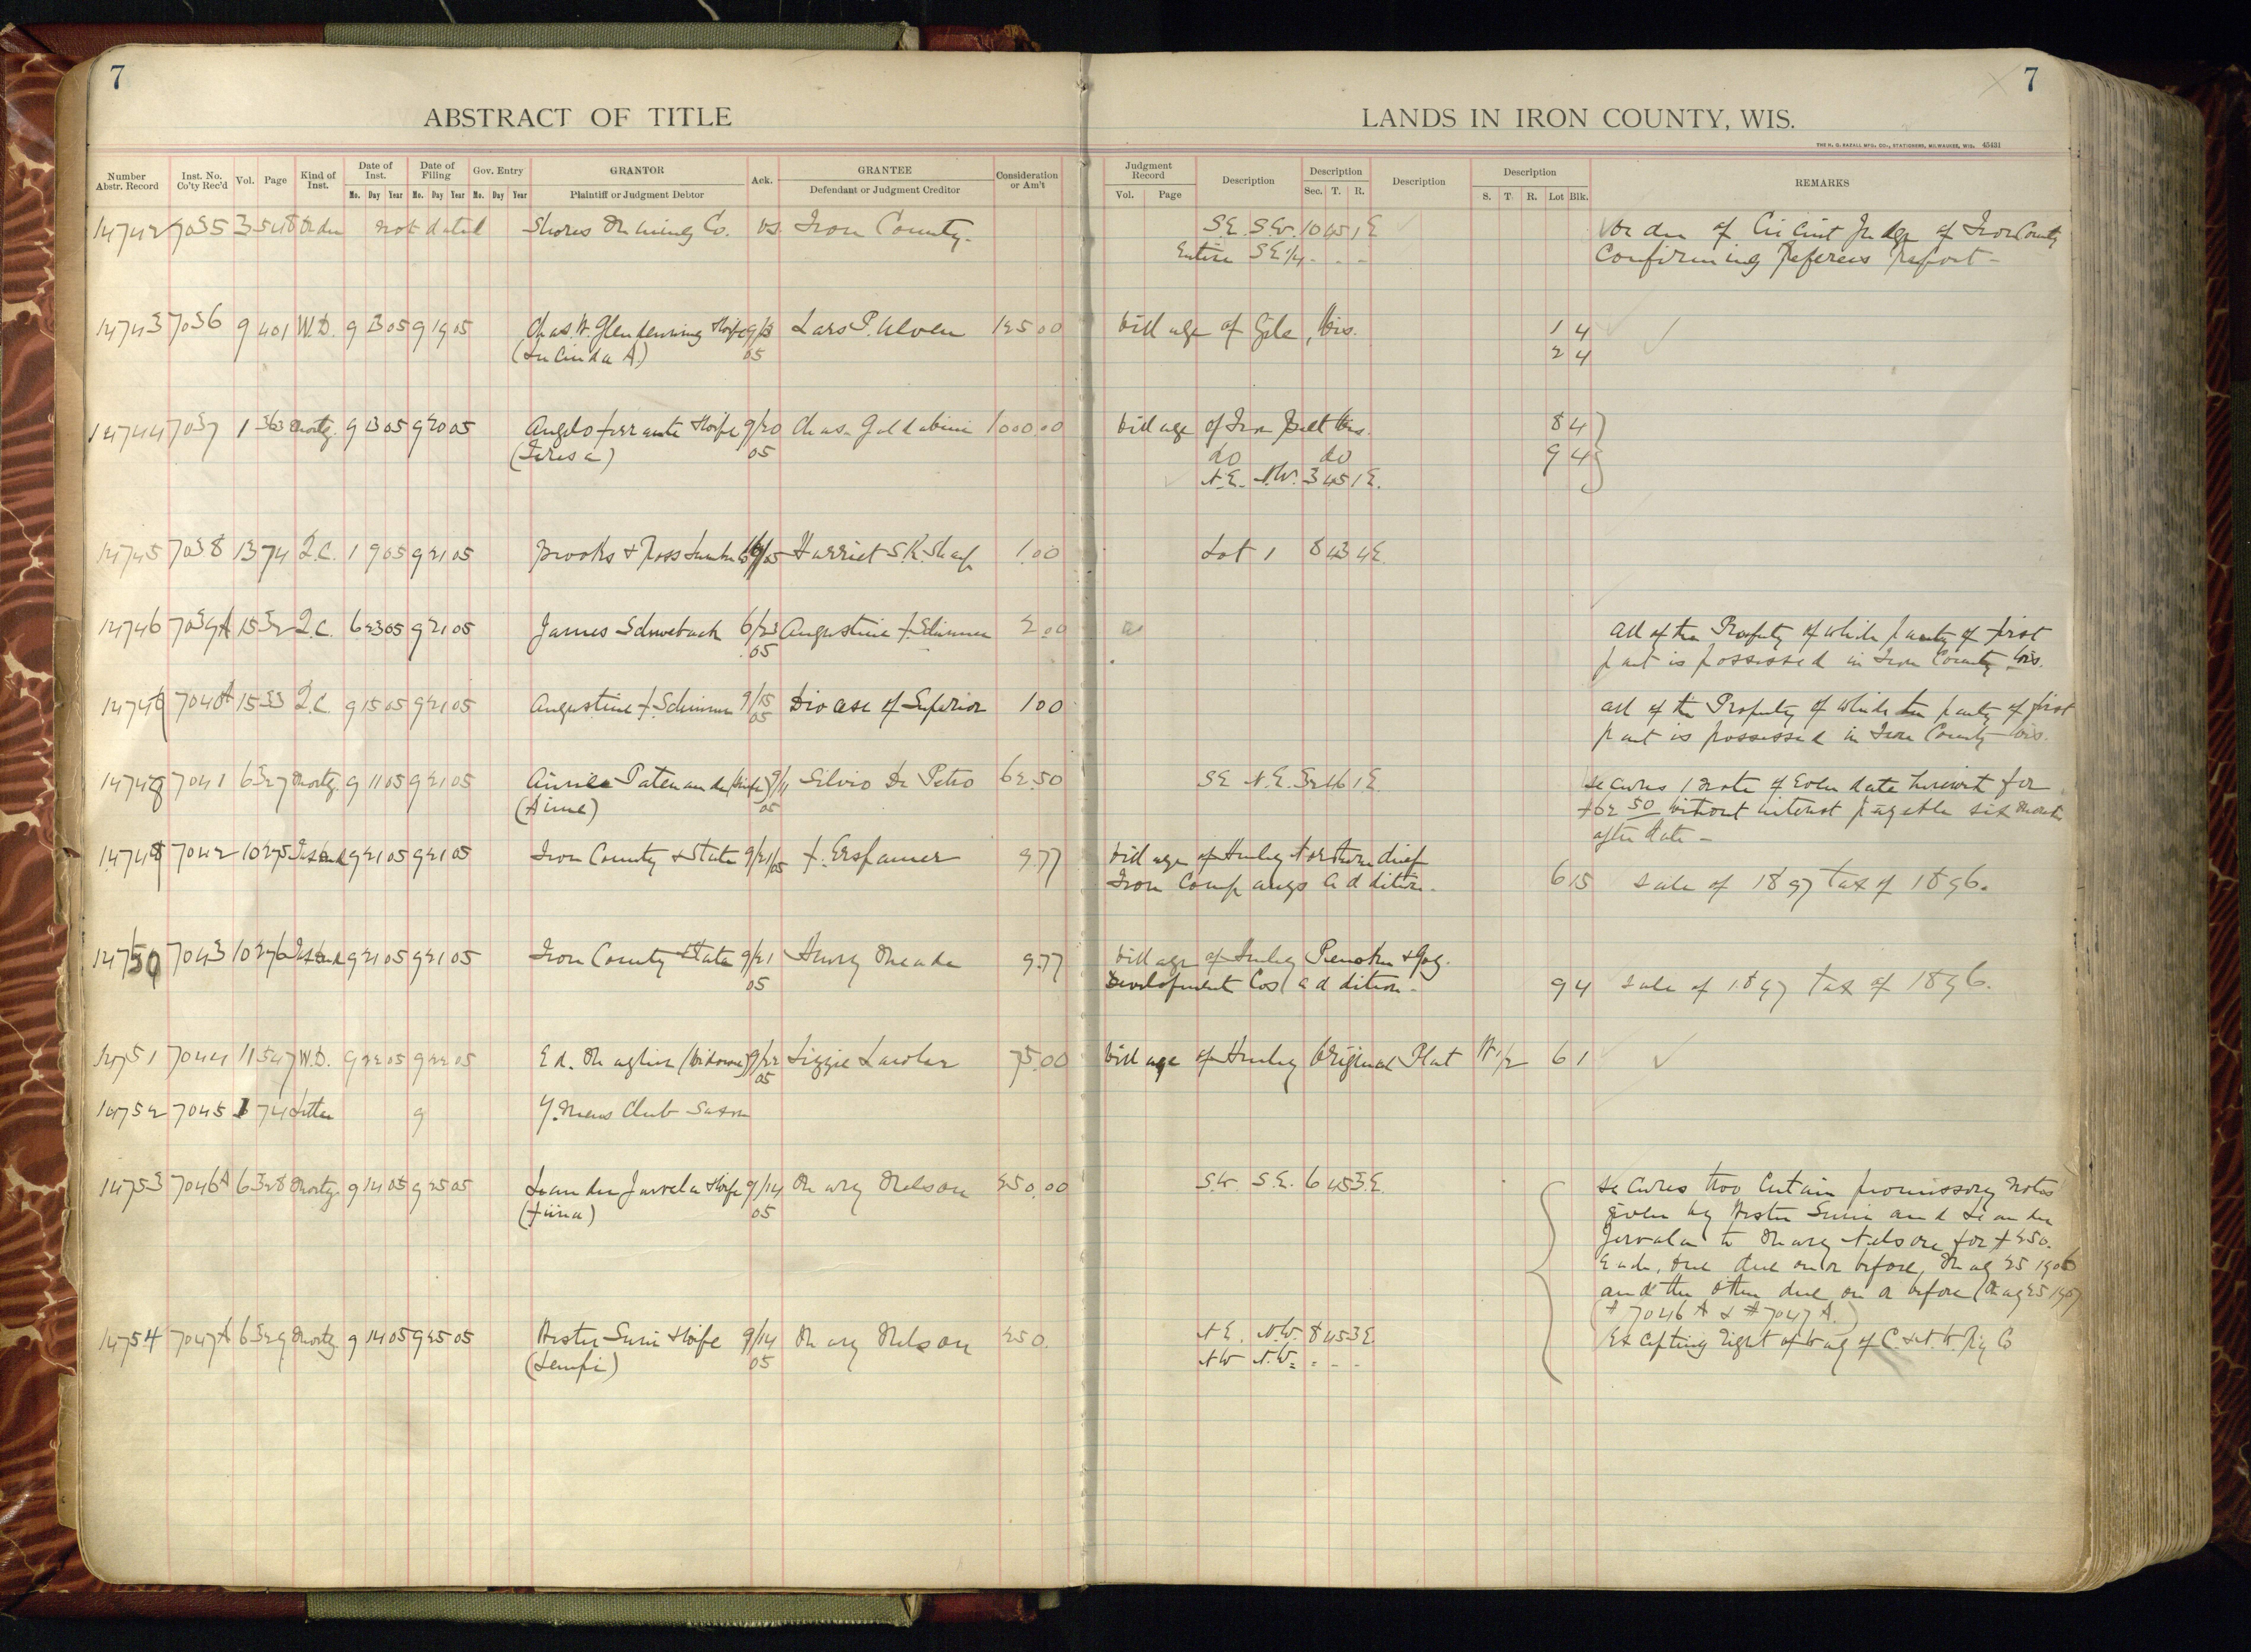 7
7
ABSTRACT OF TITLE
LANDS IN IRON COUNTY, WIS.
THE H. G. RAZALL MFG. CO., STATIONERS, MILWAUKEE, WIS. 45431
Number Abstr. Record
Inst. No. Co'ty Rec'd
Vol.
Page
Kind of Inst.
Date of Inst.
Mo. Day Year
Date of Filing
Mo. Day Year
Gov. Entry
Mo. Day Year
GRANTOR
Plaintiff or Judgment Debtor
Ack.
GRANTEE
Defendant or Judgment Creditor
Consideration or Am't
Judgment Record
Vol. Page
Description
Description
Sec. T. R.
Description
Description
S. T. R. Lot Blk.
REMARKS
14742 7035 3 548 Order not dated Shores Mining Co. vs. Iron County. S.E. S.W. 10 45 1 E Order of Circuit Judge of Iron County
Entire SE 1/4 - - - Confirming Referees Report -
14743 7036 9 401 W.D. 9 13 05 9 19 05 Chas. W. Glendenning & Wife 9/13 Lars P. Ulven 125.00 Village of Gile, Wis. 1 4
(Lucinda A.) 05 2 4
14744 7037 1 363 Mortg. 9 13 05 9 20 05 Angelo Ferrante & Wife 9/20 Chas. Galdabini 1000.00 Village of Iron Belt Wis. 8 4
(Teresa) 05 do do 9 4
N.E. N.W. 3 45 1 E.
14745 7038 13 74 Q.C. 1 9 05 9 21 05 Brooks & Ross Harriet S.K. 1.00 Lot 1 8 43 4E
14746 7039A 15 32 Q.C. 6 23 05 9 21 05 James Schwebach 6/23 Augustine F. Schinner 2.00 All of the Property of which party of first
05 part is possessed in Iron County, Wis.
1474 7040A 15 33 Q.C. 9 15 05 9 21 05 Augustine F. Schinner 9/15 Diocese of Superior 1 00 All of the Property of which the party of first
05 part is possessed in Iron County Wis.
1474 7041 6 327 Mortg. 9 11 05 9 21 05 Patenaude (Wife) 9/11 Silvio De Petro 62.50 SE N.E. 32 46 1 E. Secures 1 note of even date herewith for
(Aime) 05 $62 50 without interest payable six months
after date -
1474 7042 10 275 9 21 05 9 21 05 Iron County & State 9/21/05 F. Erspamer 9.77 Village of Hurley Northern Chief
Iron Companys Addition. 6 15 Sale of 1897 tax of 1896.
14750 7043 10 276 9 21 05 9 21 05 Iron County & State 9/21 Henry Meade 9.77 Village of Hurley Penokee & Gog.
05 Development Cos addition - 9 4 Sale of 1897 tax of 1896.
14751 7044 11 547 W.D. 9 22 05 9 22 05 Ed. (Widower) 9/22 Lizzie 75.00 Village of Hurley Original Plat W 1/2 6 1
05
14752 7045 1 74 Letter 9 Y. Mens Club Saxon
14753 7046A 6 328 Mortg. 9 14 05 9 25 05 Leander Jarvela & Wife 9/14 Mary Nelson 250.00 S.W. S.E. 6 45 3 E. Secures two certain promissory notes
(Fiina) 05 given by Hester Suni and Leander
Jarvela to Mary Nelson for $250.
Each, one due on or before May 25 1906
and the other due on or before May 25 1907
(#7046 A & #7047 A.)
14754 7047A 6 329 Mortg. 9 14 05 9 25 05 Hester Suni & Wife 9/14 Mary Nelson 250. N.E. N.W. 8 45 3 E. Excepting right of way of C. & N.W. Ry Co
(Lempi) 05 NW N.W. - - -